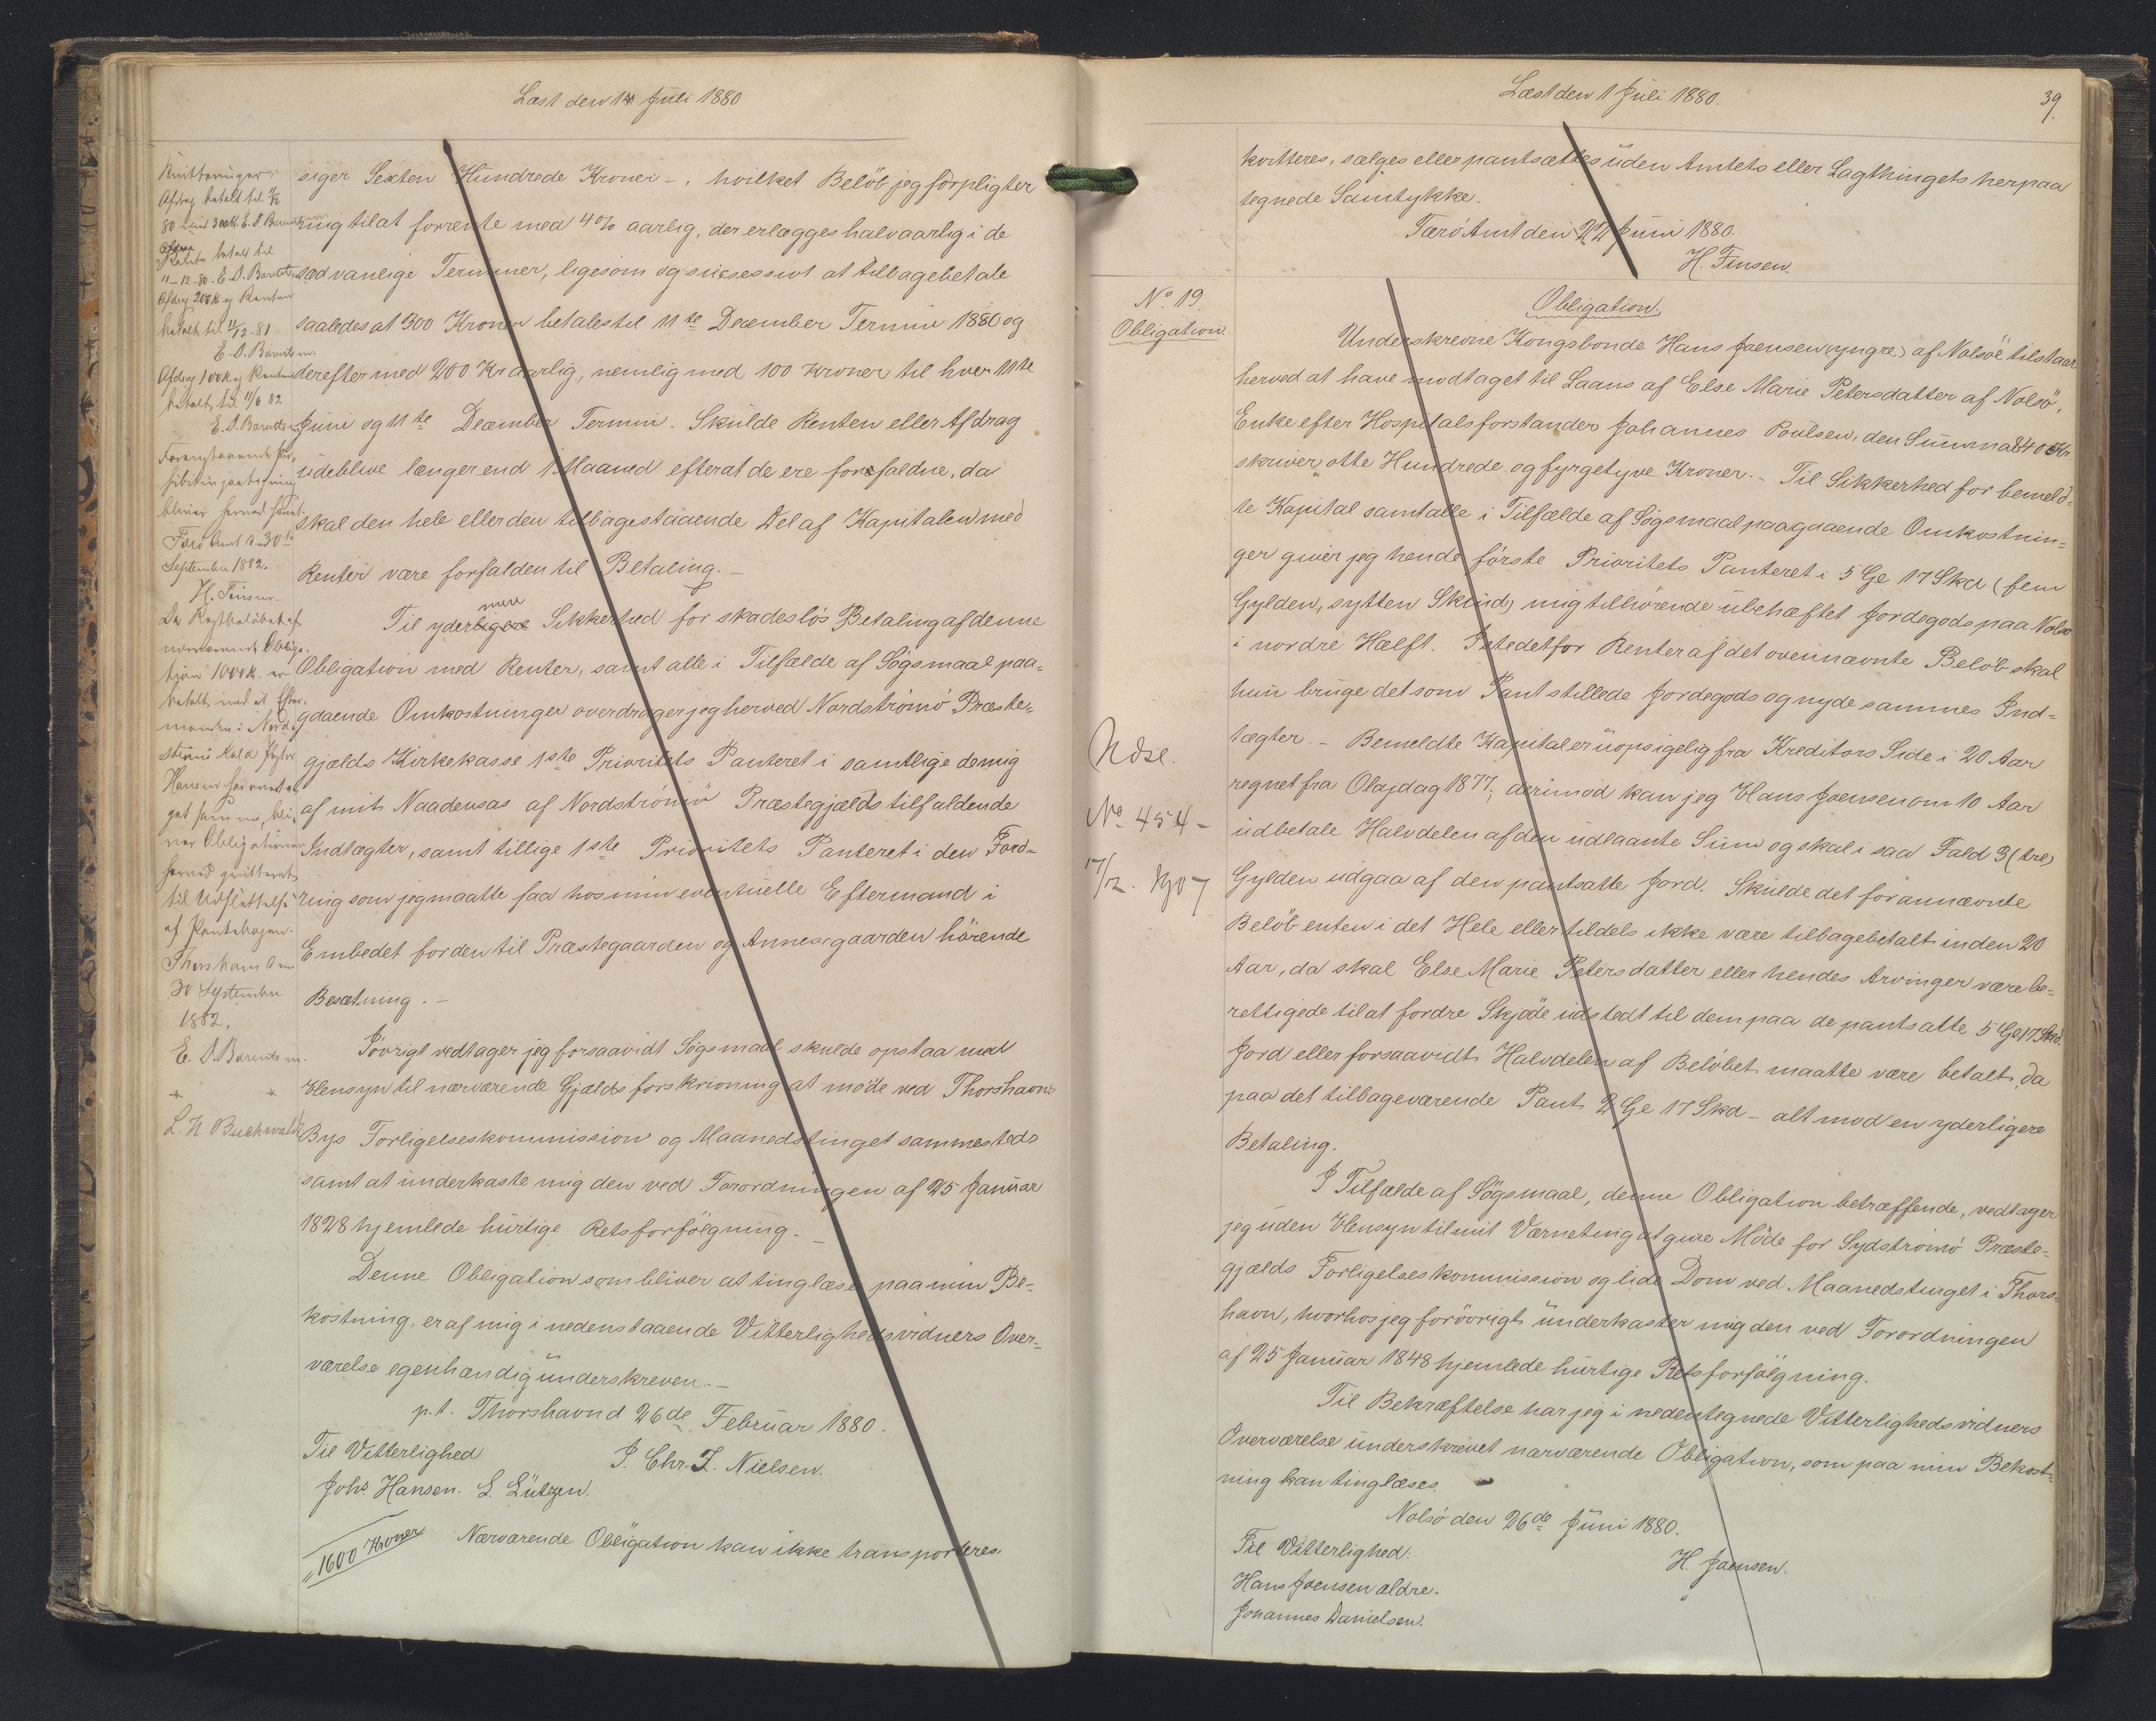 Læst den 1 Juli 1880
Kvitteringer:
Afdrag betalt til
80 med 300 K. E. S. Barentsen
Rente betalt til
11-12-80. E. S. Barentsen
Afdrag 200 K og Renten
betalt til 11/12-81
E. S. Barentsen.
Afdrag 100 K. og Renten
betalt til 11/6 82
E. S. Barentsen
Foranstaaende Pro-
hibitivpaategning
bliver herved hævet.
Færø Amt den 30te
September 1882.
H. Finsen.
Da Restbeløbet af
nærværende Obliga-
tion 1000 K. er
betalt ved at Efter-
manden i Nord-
strømø Kald Pastor
Hansen har overta-
get samme, bli-
ver Obligationen
herved qvitteret
til Udslettelse
af Pantebogen.
Thorshavn den
30 September
1882.
E. S. Barentsen.
L. N. Buchwaldt
siger Sexten Hundrede Kroner -, hvilket Beløb jeg forpligter
mig til at forrente med 4% aarlig, der erlægges halvaarlig i de
sædvanlige Terminer, ligesom og successivt at tilbagebetale
saaledes at 300 Kroner betales til 11te December Termin 1880 og
derefter med 200 Kr aarlig, nemlig med 100 Kroner til hver 11te
Juni og 11te December Termin. Skulde Renten eller Afdrag
udeblive længer end 1 Maaned efterat de ere forfaldne, da
skal den hele eller den tilbagestaaende Del af Kapitalen med
Renter være forfalden til Betaling. -
mere
Til yderligere Sikkerhed for skadesløs Betaling af denne
Obligation med Renter, samt alle i Tilfælde af Søgsmaal paa-
gaaende Omkostninger overdrager jeg herved Nordstrømø Præste-
gjælds Kirkekasse 1ste Prioritets Panteret i samtlige de mig
af mit Naadensaar af Nordstrømø Præstegjælds tilfaldende
Indtægter, samt tillige 1ste Prioritets Panteret i den Ford-
ring som jeg maatte faa hos min eventuelle Eftermand i
Embedet for den til Præstegaarden og Annexgaarden hørende
Besætning. -
Iøvrigt vedtager jeg forsaavidt Søgsmaal skulde opstaa med
Hensyn til nærværende Gjældsforskrivning at møde ved Thorshavns
Bys Forligelseskommission og Maanedstinget sammesteds
samt at underkaste mig den ved Forordningen af 25 Januar
1828 hjemlede hurtige Retsforfølgning. -
Denne Obligation som bliver at tinglæse paa min Be-
kostning, er af mig i nedenstaaende Vitterlighedsvidners Over-
værelse egenhændig underskreven. -
p.t. Thorshavn d 26de Februar 1880.
Til Vitterlighed
J. Chr. Z. Nielsen.
Johs Hansen. L. Lützen.
1600 Kroner
Nærværende Obligation kan ikke transporteres.
Læst den 1 Juli 1880.
39.
kvitteres, sælges eller pantsættes uden Amtets eller Lagthingets herpaa
tegnede Samtykke.
Færø Amt den 22 Juni 1880.
H. Finsen.
No 19
Obligation.
Obligation.
Underskrevne Kongsbonde Hans Joensen (yngre) af Nolsøe tilstaar
herved at have modtaget til Laans af Else Marie Petersdatter af Nolsø,
Enke efter Hospitalsforstander Johannes Poulsen, den Summa 840 Kr
skriver otte Hundrede og fyrgetyve Kroner. - Til Sikkerhed for bemeld-
te Kapital samt alle i Tilfælde af Søgsmaal paagaaende Omkostnin-
ger giver jeg hende første Prioritets Panteret i 5 Ge 17 Skd (fem
Gylden, sytten Skind) mig tilhørende ubehæftet Jordegods paa Nolsø
i nordre Hælft. Istedetfor Renter af det ovennævnte Beløb skal
hun bruge det som Pant stillede Jordegods og nyde sammes Ind-
tægter. - Bemeldte Kapital er uopsigelig fra Kreditors Side i 20 Aar
regnet fra Olajdag 1877; derimod kan jeg Hans Joensen om 10 Aar
udbetale Halvdelen af den udlaante Sum og skal i saa Fald 3 (tre)
Gylden udgaa af den pantsatte Jord. Skulde det forannævnte
Beløb enten i det Hele eller tildels ikke være tilbagebetalt inden 20
Aar, da skal Else Marie Petersdatter eller hendes Arvinger være be-
rettigede til at fordre Skjøde udstedt til dem paa de pantsatte 5 Ge 17 Skd.
Jord eller forsaavidt Halvdelen af Beløbet maatte være betalt, da
paa det tilbageværende Pant 2 Ge 17 Skd - alt mod en yderligere
Betaling.
I Tilfælde af Søgsmaal, denne Obligation betræffende, vedtager
jeg uden Hensyn til mit Værneting at give Møde for Sydstrømø Præste-
gjælds Forligelseskommission og lide Dom ved Maanedstinget i Thors-
havn, hvorhos jeg forøvrigt underkaster mig den ved Forordningen
af 25 Januar 1848 hjemlede hurtige Retsforfølgning.
Til Bekræftelse har jeg i nedentegnede Vitterlighedsvidners
Overværelse underskrevet nærværende Obligation, som paa min Bekost-
ning kan tinglæses.
Nolsø den 26de Juni 1880.
Til Vitterlighed:
H. Joensen.
Hans Joensen ældre.
Johannes Danielsen.
Udsl.
No 454 -
17/12. 1907